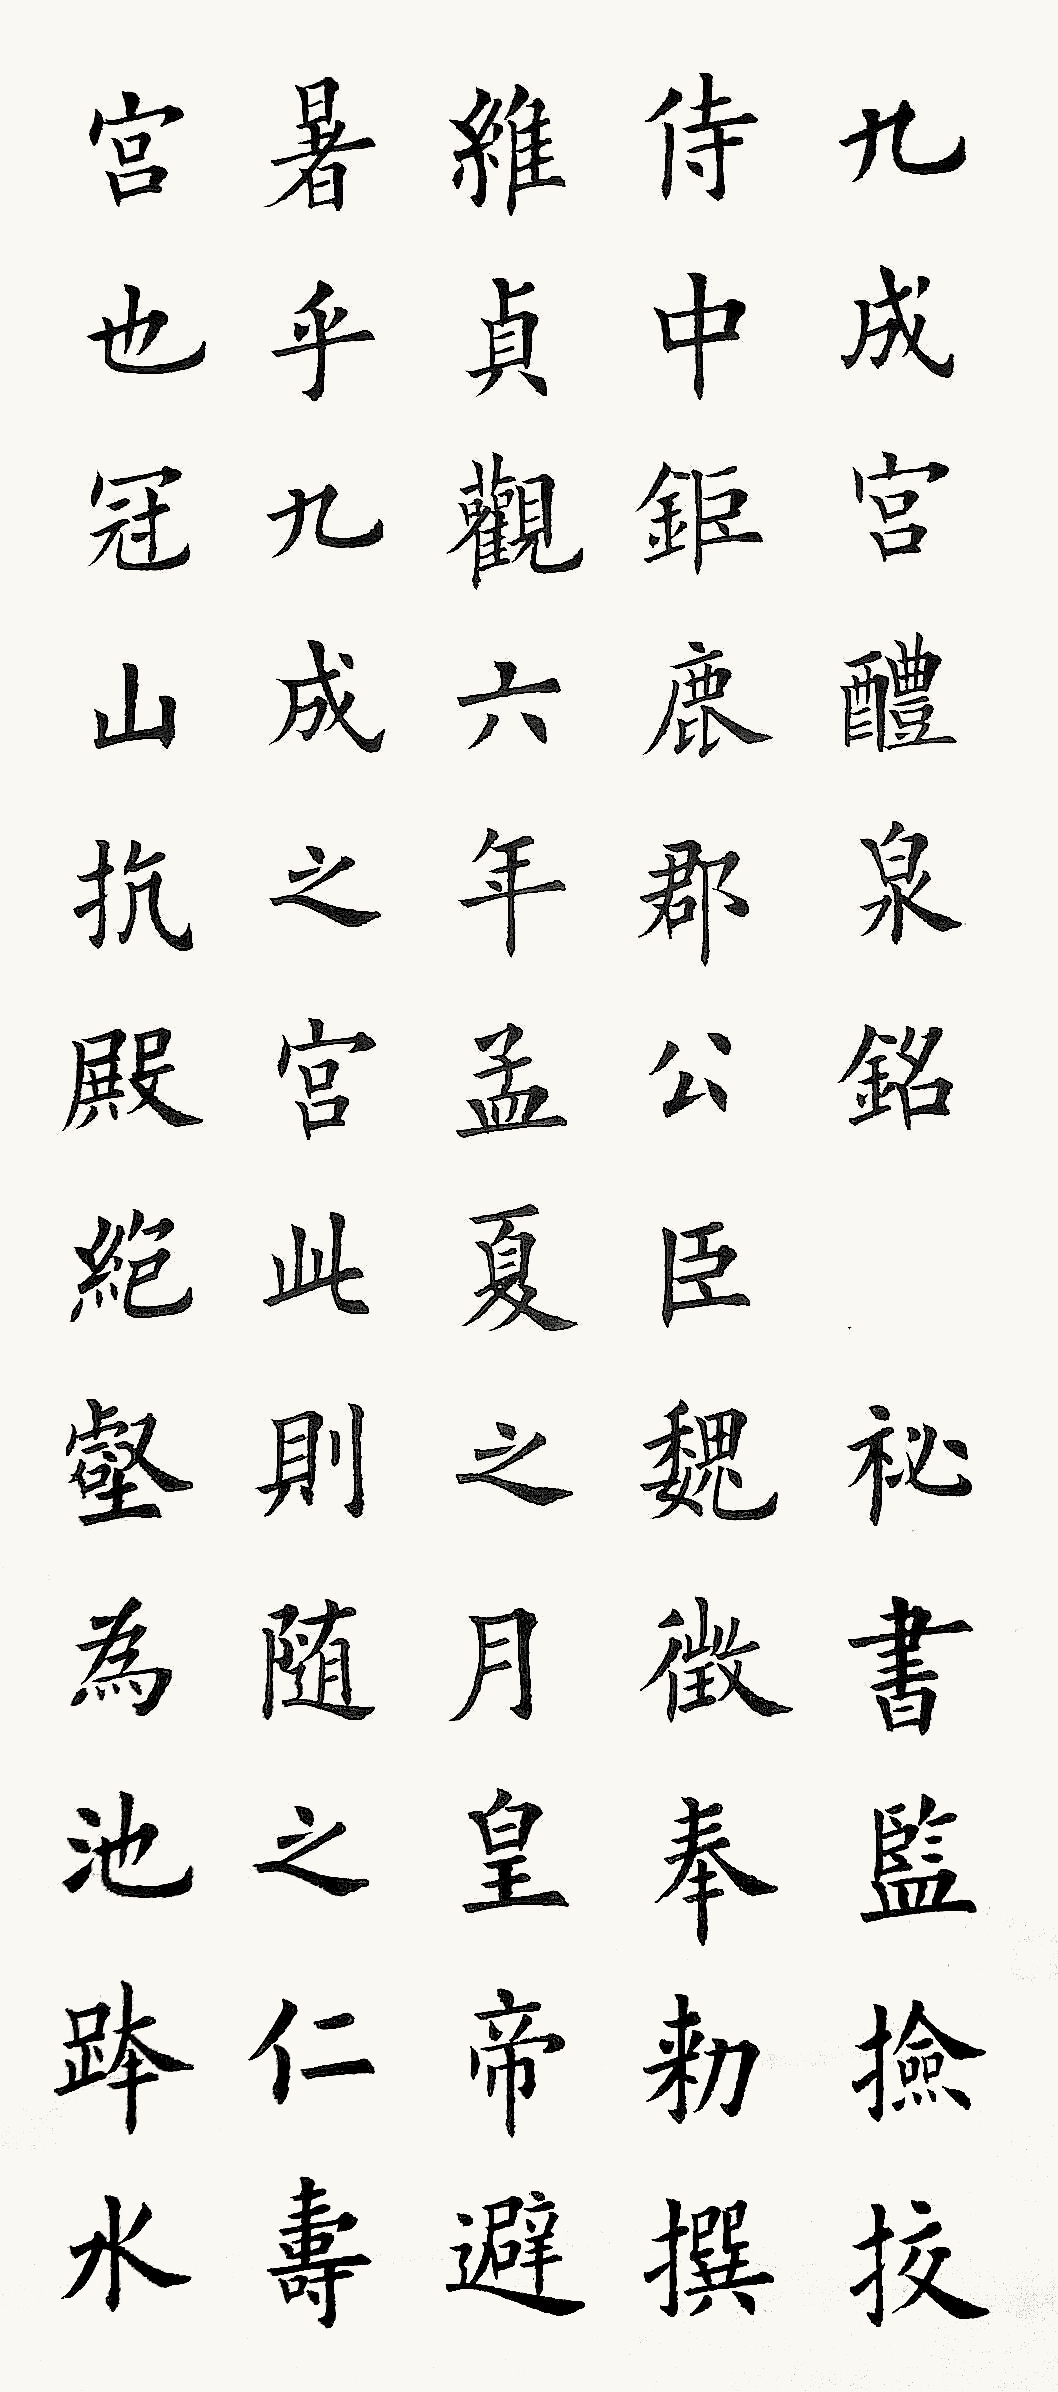 九成宮醴泉銘 祕書監撿挍
侍中鉅鹿郡公臣魏徵奉勑撰
維貞觀六年孟夏之月皇帝避
暑乎九成之宮此則随之仁壽
宮也冠山抗殿絕壑為池跨水